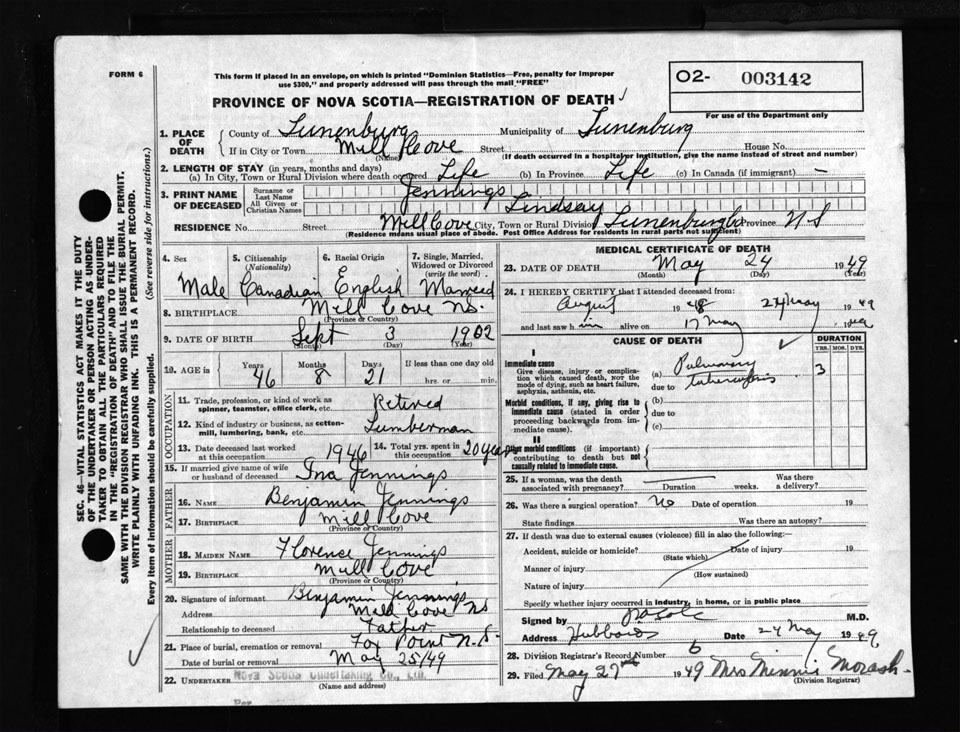 FORM 6
This form if placed in an envelope, on which is printed "Dominion Statistics—Free, penalty for improper
use $300," and properly addressed will pass through the mail "FREE"
O2- 003142
For use of the Department only
PROVINCE OF NOVA SCOTIA—REGISTRATION OF DEATH
1. PLACE OF DEATH
County of Lunenburg Municipality of Lunenburg
If in City or Town Mill Cove Street House No.
(Name) (If death occurred in a hospital or institution, give the name instead of street and number)
2. LENGTH OF STAY (in years, months and days)
(a) In City, Town or Rural Division where death occurred Life (b) In Province Life (c) In Canada (if immigrant) —
3. PRINT NAME OF DECEASED
Surname or Last Name Jennings
All Given or Christian Names Lindsay
RESIDENCE No. Street Mill Cove City, Town or Rural Division Lunenburg Co Province N S
(Residence means usual place of abode. Post Office Address for residents in rural parts not sufficient)
4. Sex 5. Citizenship (Nationality) 6. Racial Origin 7. Single, Married, Widowed or Divorced (write the word)
Male Canadian English Married
8. BIRTHPLACE Mill Cove NS.
(Province or Country)
9. DATE OF BIRTH Sept 3 1902
(Month) (Day) (Year)
10. AGE in Years Months Days If less than one day old
46 8 21 hrs. or min.
OCCUPATION
11. Trade, profession, or kind of work as spinner, teamster, office clerk, etc. Retired
12. Kind of industry or business, as cotton-mill, lumbering, bank, etc. Lumberman
13. Date deceased last worked at this occupation 1946 14. Total yrs. spent in this occupation 20 years
15. If married give name of wife or husband of deceased Ina Jennings
FATHER
16. NAME Benjamin Jennings
17. BIRTHPLACE Mill Cove
(Province or Country)
MOTHER
18. MAIDEN NAME Florence Jennings
19. BIRTHPLACE Mill Cove
(Province or Country)
20. Signature of informant Benjamin Jennings
Address Mill Cove NS
Relationship to deceased Father
21. Place of burial, cremation or removal Fox Point N.S.
Date of burial or removal May 25/49
22. UNDERTAKER Nova Scotia Undertaking Co., Ltd.
(Name and address)
Per
MEDICAL CERTIFICATE OF DEATH
23. DATE OF DEATH May 24 1949
(Month) (Day) (Year)
24. I HEREBY CERTIFY that I attended deceased from:
August 1948 24 May 1949
and last saw him alive on 17 May 19
CAUSE OF DEATH DURATION
YRS. MOS. DYS.
I
Immediate cause
Give disease, injury or complication which caused death, not the mode of dying, such as heart failure, asphyxia, asthenia, etc.
(a) Pulmonary 3
due to tuberculosis
Morbid conditions, if any, giving rise to immediate cause (stated in order proceeding backwards from immediate cause).
(b)
due to
(c)
II
Other morbid conditions (if important) contributing to death but not causally related to immediate cause.
25. If a woman, was the death associated with pregnancy? Duration weeks. Was there a delivery?
26. Was there a surgical operation? No Date of operation 19
State findings Was there an autopsy?
27. If death was due to external causes (violence) fill in also the following:—
Accident, suicide or homicide? (State which) Date of injury 19
Manner of injury (How sustained)
Nature of injury
Specify whether injury occurred in industry, in home, or in public place
Signed by M.D.
Address Hubbards Date 24 May 1949
28. Division Registrar's Record Number 6
29. Filed May 27th 1949 Mrs Minnie Morash
(Division Registrar)
SEC. 46—VITAL STATISTICS ACT MAKES IT THE DUTY
OF THE UNDERTAKER OR PERSON ACTING AS UNDER-
TAKER TO OBTAIN ALL THE PARTICULARS REQUIRED
IN THE "REGISTRATION OF DEATH" AND TO FILE THE
SAME WITH THE DIVISION REGISTRAR WHO SHALL ISSUE THE BURIAL PERMIT.
WRITE PLAINLY WITH UNFADING INK. THIS IS A PERMANENT RECORD.
Every item of information should be carefully supplied. (See reverse side for instructions.)